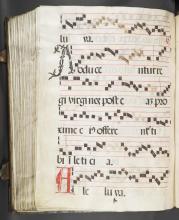 lu ya.
Adducen tur re
gi virgines post e as pro
xime e ius offere n t ti
bi i leti ci a.
A le lu ya.